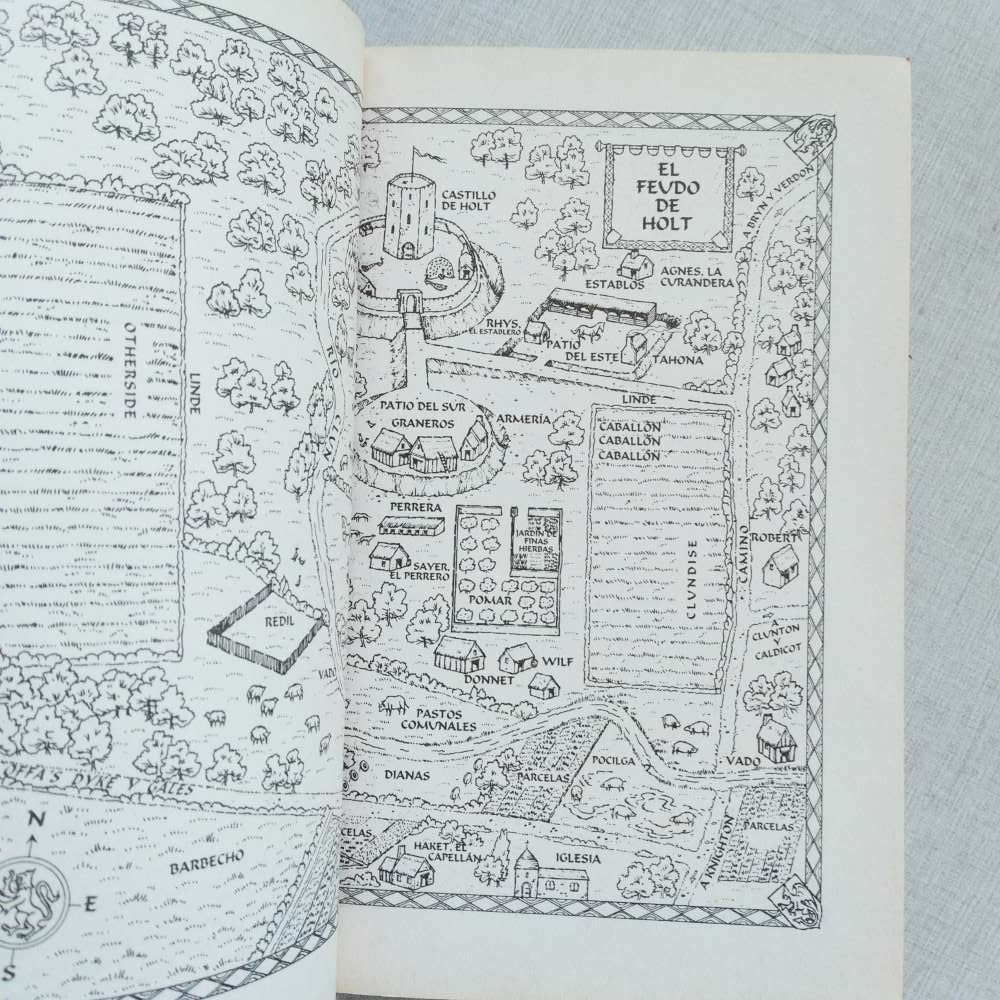 OTHERSIDE
LINDE
REDIL
VADO
OFFA'S DYKE Y GALES
BARBECHO
N
E
S
EL
FEUDO
DE
HOLT
CASTILLO
DE HOLT
A BRYN Y VERDON
AGNES, LA
CURANDERA
ESTABLOS
RHYS,
EL ESTABLERO
PATIO
DEL ESTE
TAHONA
LINDE
PATIO DEL SUR
GRANEROS
ARMERÍA
CABALLÓN
CABALLÓN
CABALLÓN
PERRERA
JARDÍN DE
FINAS
HIERBAS
SAYER,
EL PERRERO
POMAR
CLUNDISE
CAMINO
ROBERT
A
CLUNTON
Y
CALDICOT
WILF
DONNET
PASTOS
COMUNALES
DIANAS
PARCELAS
POCILGA
VADO
HAKET, EL
CAPELLÁN
IGLESIA
A KNIGHTON
PARCELAS